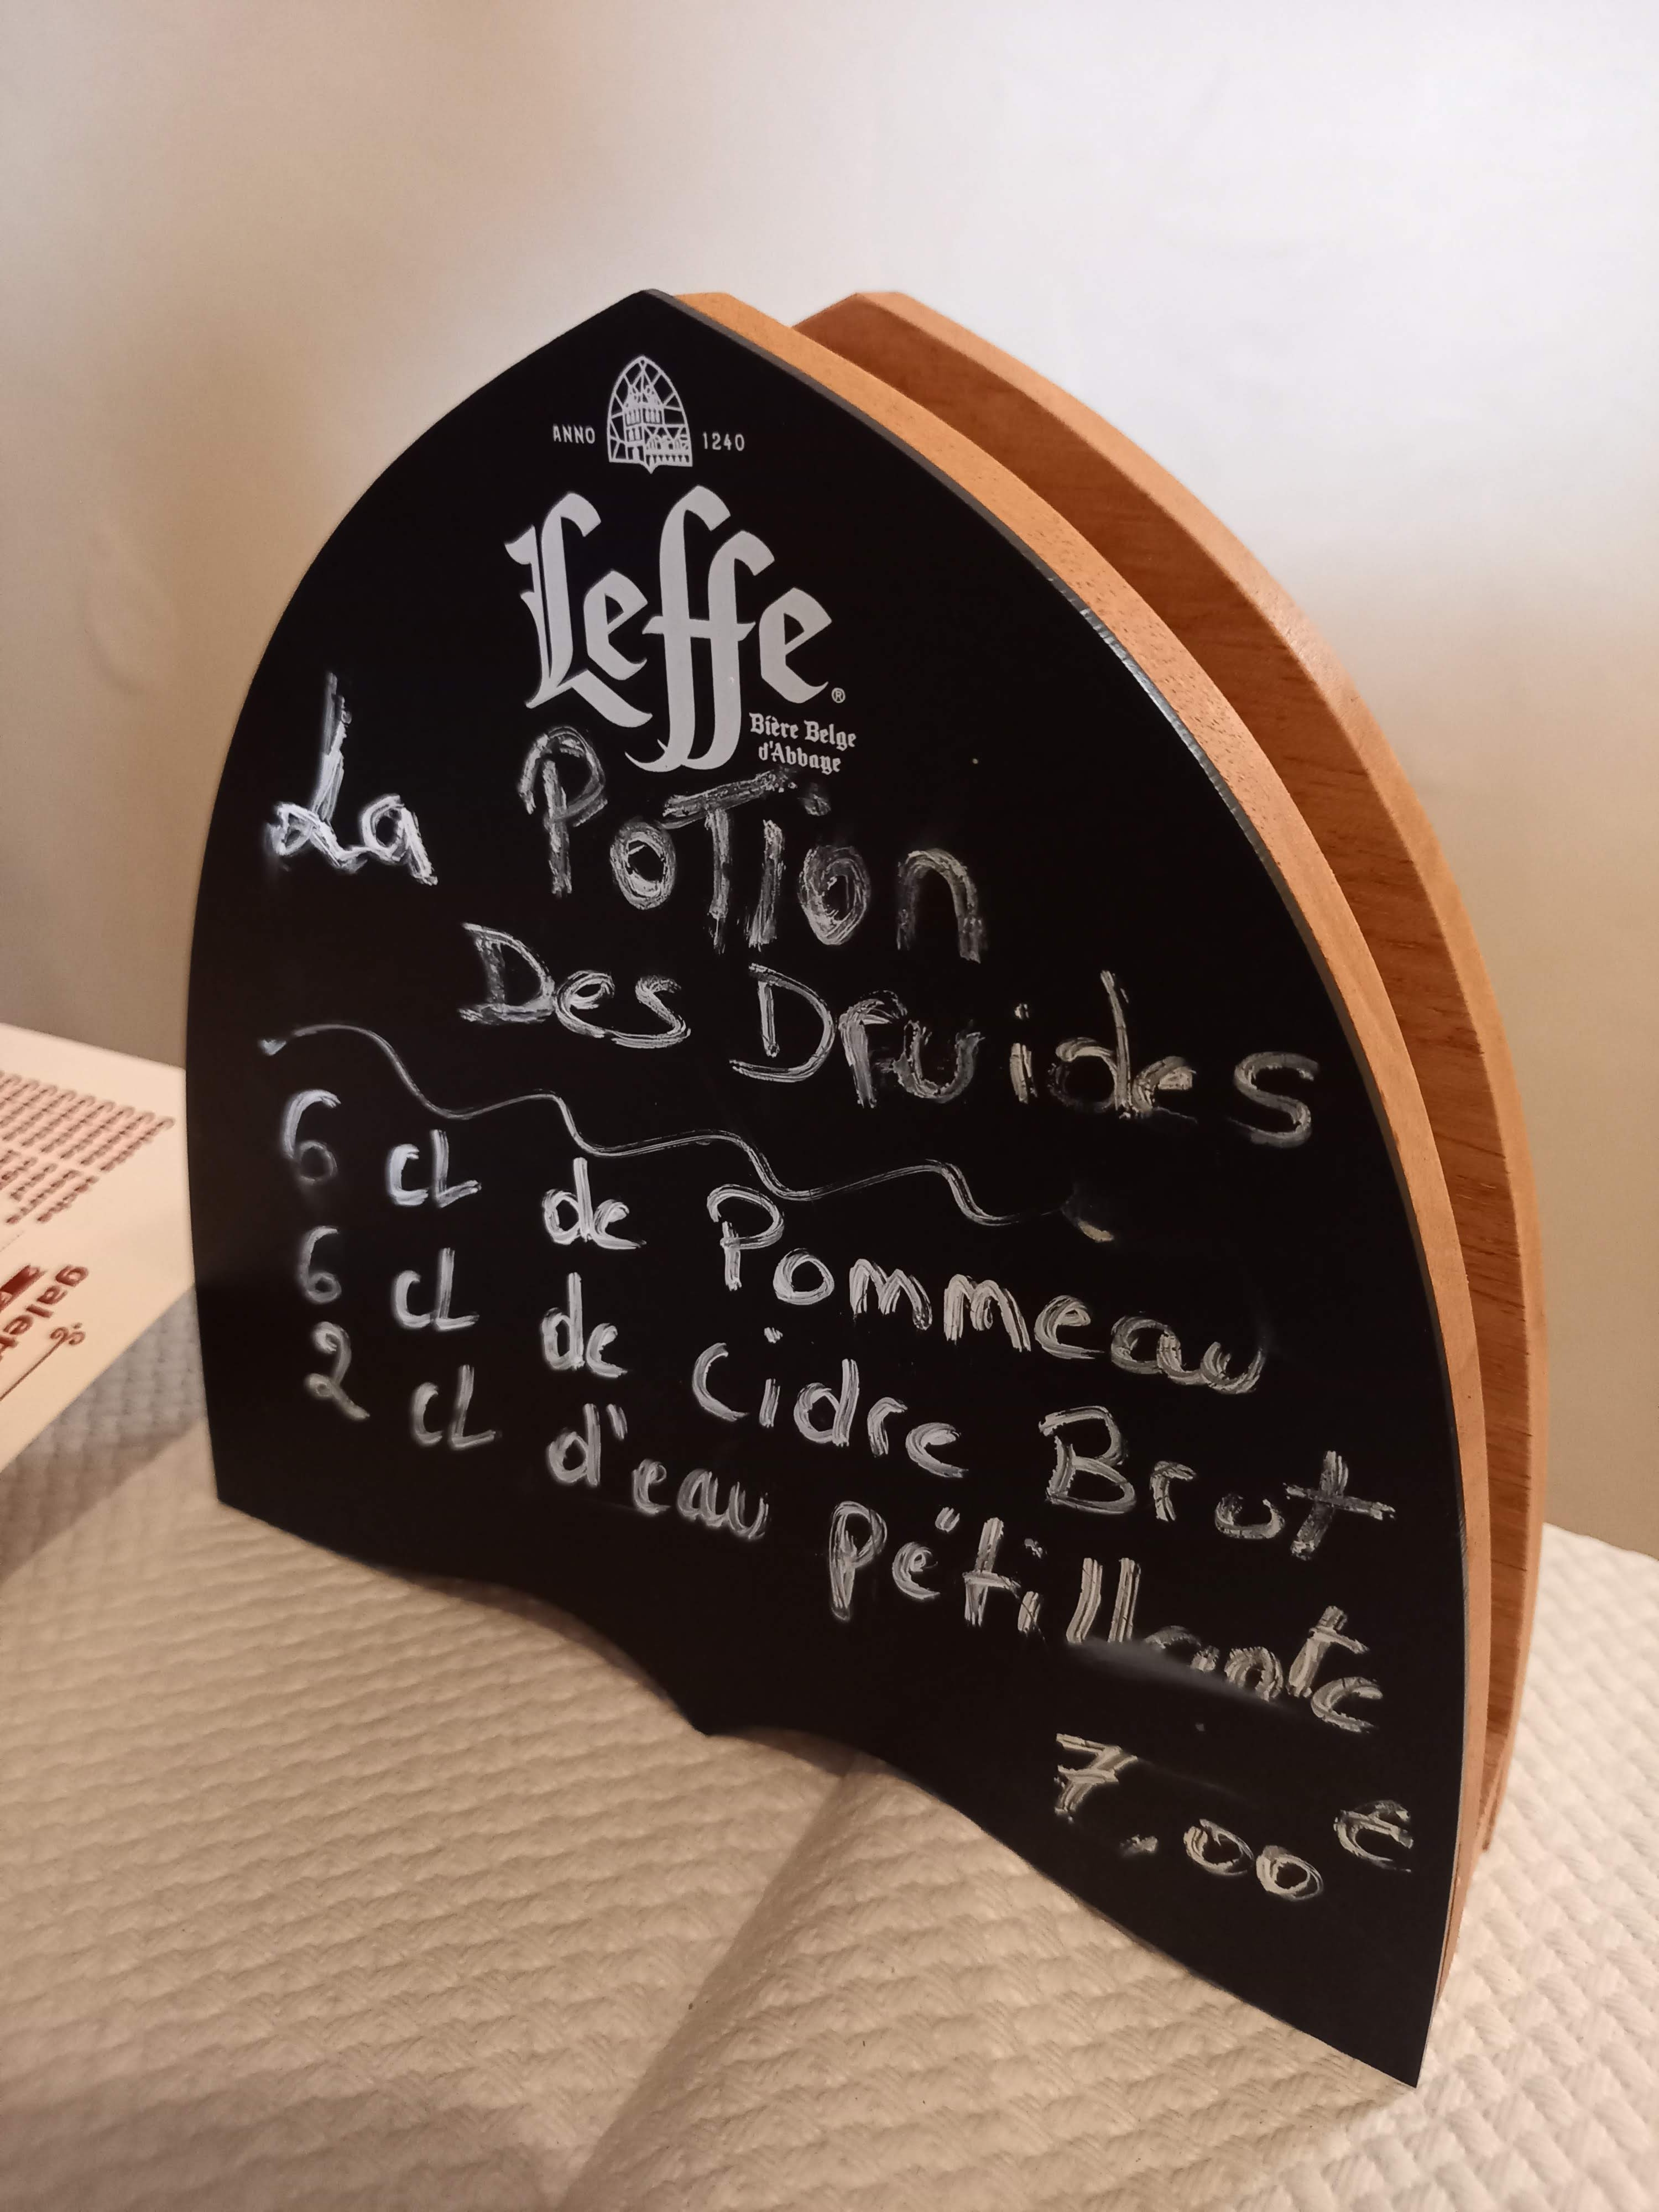 ANNO 1240
Leffe®
Bière Belge
d'Abbaye
La Potion
Des Druides
6 cl de Pommeau
6 cl de Cidre Brut
2 cl d'eau pétillante
7,00 €